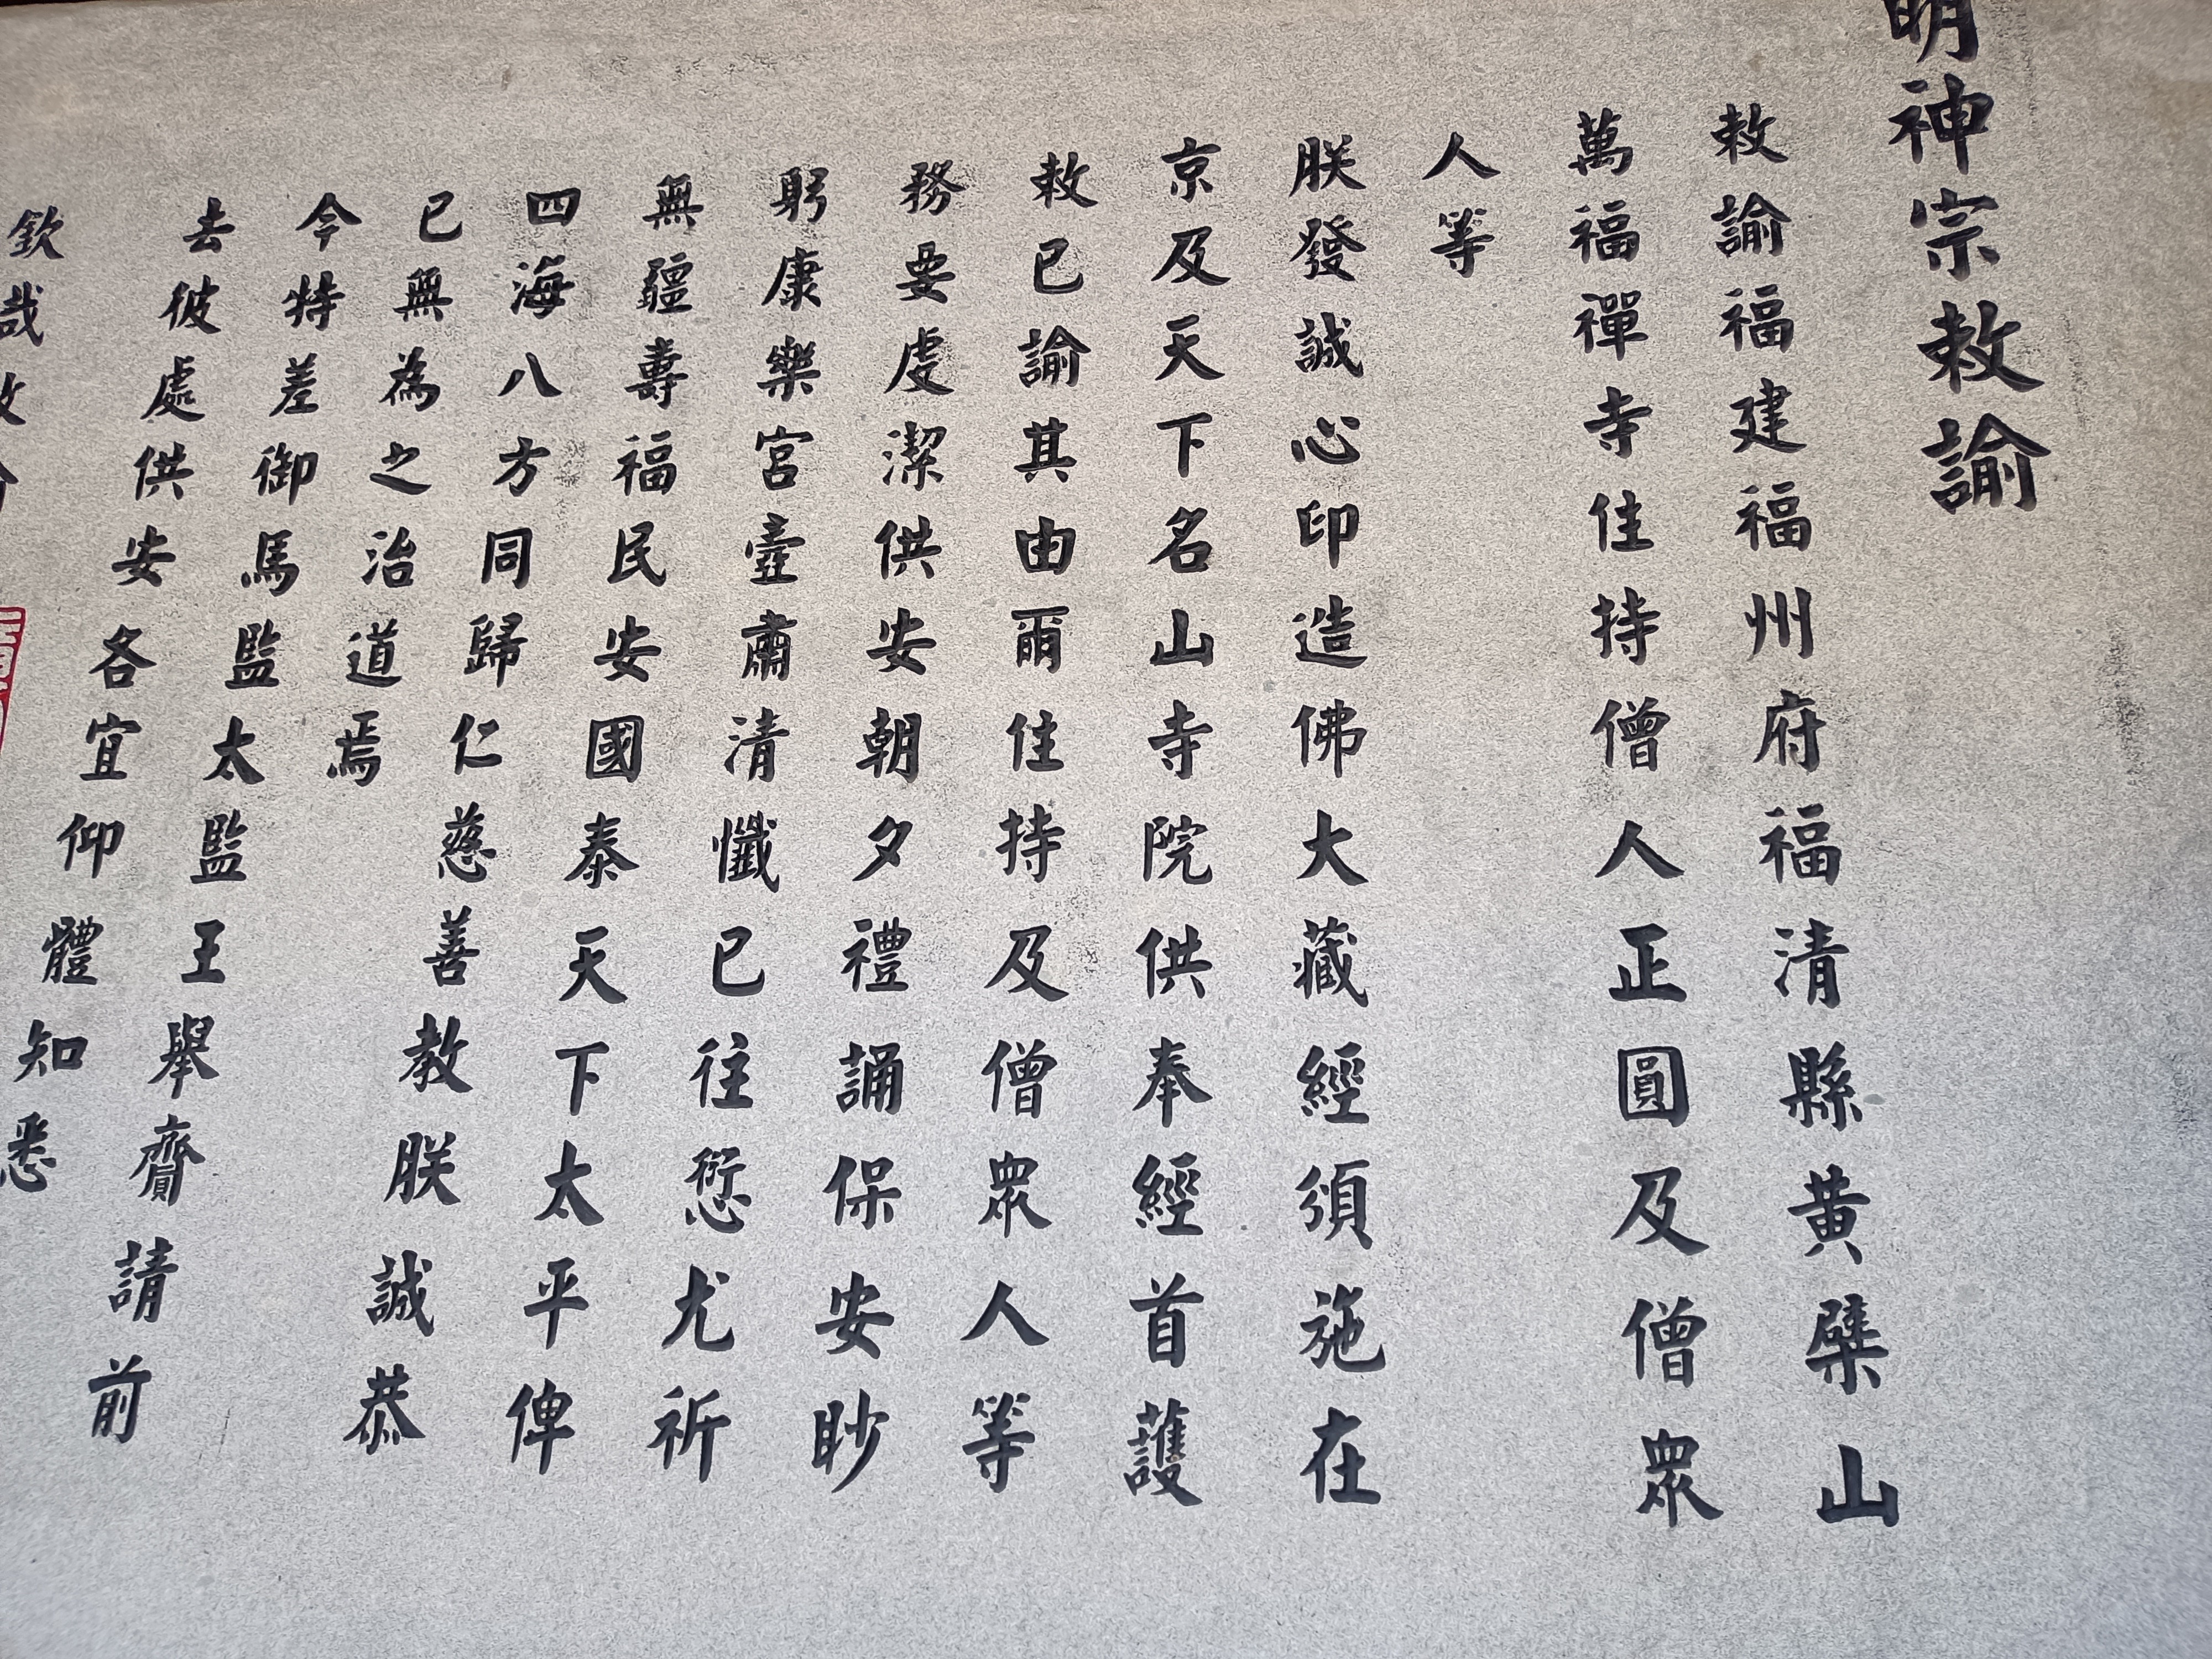 明神宗敕諭
敕諭福建福州府福清縣黄檗山
萬福禪寺住持僧人正圓及僧眾
人等
朕發誠心印造佛大藏經須施在
京及天下名山寺院供奉經首護
敕已諭其由爾住持及僧眾人等
務要虔潔供安朝夕禮誦保安眇
躬康樂宮壼肅清懺已往愆尤祈
無疆壽福民安國泰天下太平俾
四海八方同歸仁慈善教朕誠恭
已無為之治道焉
今特差御馬監太監王舉齎請前
去彼處供安各宜仰體知悉
欽哉